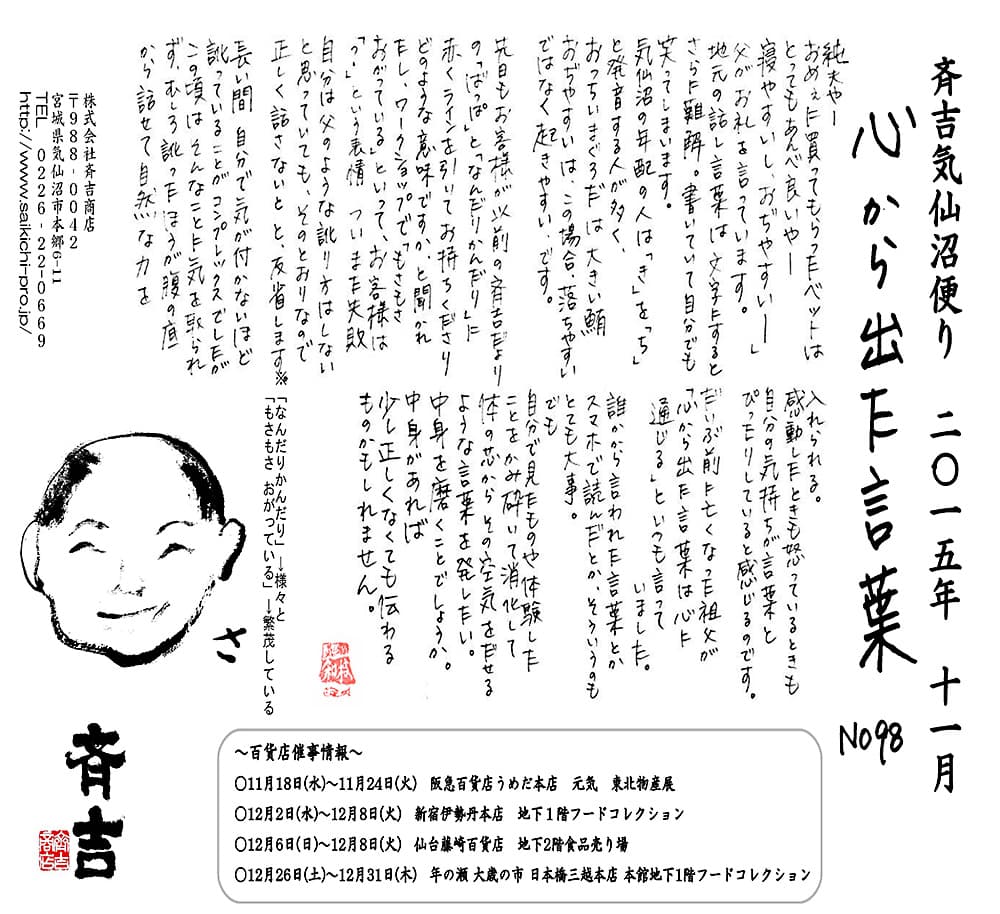 斉吉気仙沼便り 二〇一五年 十一月
心から出た言葉
No98
純夫やー
おめぇに買ってもらったベットは
とってもあんべ良いやー
寝やすいし、おぢやすいー」
父がお礼を言っています。
地元の話し言葉は文字にすると
さらに難解。書いていて自分でも
笑ってしまいます。
気仙沼の年配の人は「き」を「ち」
と発音する人が多く、
おっちいまぐろだは大きい鮪
おぢやすいは、この場合、落ちやすい
ではなく起きやすい、です。
先日もお客様が以前の斉吉だより
の「ばっぱ」と「なんだりかんだり」に
赤くラインを引いてお持ちくださり
どのような意味ですか、と聞かれ
たし、ワークショップで「もさもさ
おがっている」といって、お客様は
「？」という表情 ついまた失敗
自分は父のような訛り方はしない
と思っていても、そのとおりなので
正しく話さないと、と、反省します※
長い間 自分で気が付かないほど
訛っていることがコンプレックスでしたが
この頃はそんなことに気を取られ
ず、むしろ訛ったほうが腹の底
から話せて自然な力を
入れられる。
感動したときも怒っているときも
自分の気持ちが言葉と
ぴったりしていると感じるのです。
だいぶ前に亡くなった祖父が
「心から出た言葉は心に
通じる」といつも言って
いました。
誰かから言われた言葉とか
スマホで読んだとか、そういうのも
とても大事。
でも
自分で見たものや体験した
ことをかみ砕いて消化して
体の芯からその空気をだせる
ような言葉を発したい。
中身を磨くことでしょうか。
中身があれば
少し正しくなくても伝わる
ものかもしれません。
「なんだりかんだり」→様々と
「もさもさ おがっている」→繁茂している
株式会社斉吉商店
〒988-0042
宮城県気仙沼市本郷6-11
TEL 0226-22-0669
http://www.saikichi-pro.jp/
さ
斉吉
～百貨店催事情報～
○11月18日(水)～11月24日(火) 阪急百貨店うめだ本店 元気 東北物産展
○12月2日(水)～12月8日(火) 新宿伊勢丹本店 地下１階フードコレクション
○12月6日(日)～12月8日(火) 仙台藤崎百貨店 地下2階食品売り場
○12月26日(土)～12月31日(木) 年の瀬 大歳の市 日本橋三越本店 本館地下1階フードコレクション